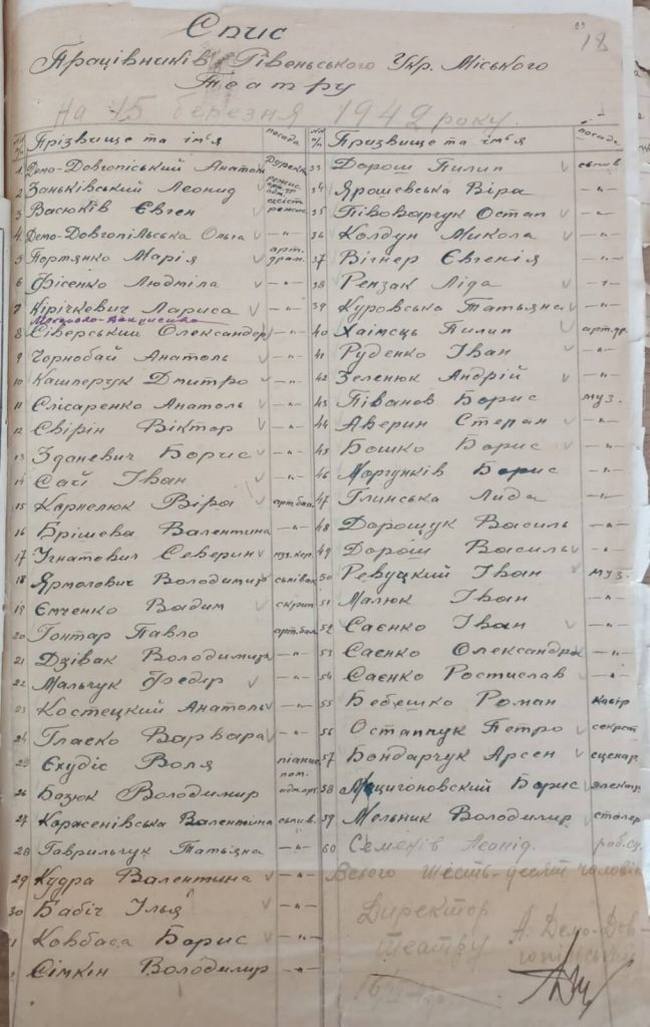 18
Спис
Працівників Рівеньського Укр. Міського
Театру
На 15 березня 1942 року.
Прізвище та ім'я посада
1 Демо-Довгопіський Анатоль
2 Заньківський Леонид
3 Васюків Євген
4 Демо-Довгопільська Ольга —"—
5 Портянко Марія арт. драм.
6 Фісенко Людміла —"—
7 Кірічкович Лариса —"—
8 Сіверський Олександер —"—
9 Чорнобай Анатоль —"—
10 Кашперук Дмитро —"—
11 Слісаренко Анатоль —"—
12 Свірін Віктор —"—
13 Зданевич Борис —"—
14 Сай Іван —"—
15 Корнелюк Віра арт.бал.
16 Брішева Валентина —"—
17 Ігнатович Северин муз.кер.
18 Ярмолович Володимир співак
19 Ємченко Вадим скрип.
20 Гонтар Павло арт.бал.
21 Дзівак Володимир —"—
22 Мальчук Федір —"—
23 Костецкий Анатоль —"—
24 Гласко Варвара —"—
25 Єхудіс Воля піаніс.
26 Бозюк Володимир
27 Корженівська Валентина співв.
28 Гаврильчук Татьяна —"—
29 Кудра Валентина —"—
30 Бабіч Ілья —"—
Ковбаса Борис —"—
Сімкін Володимир —"—
Призвище та ім'я посада
33 Дорош Пилип співв
34 Ярошевська Віра —"—
35 Півоварчук Остап —"—
36 Колдун Микола —"—
37 Вігнер Євгенія —"—
38 Рензак Ліда —"—
39 Куровська Татьяна —"—
40 Хаімець Пилип арт.др.
41 Руденко Іван —"—
42 Зеленюк Андрій —"—
43 Піванов Борис муз.
44 Аверин Степан —"—
45 Бошко Борис —"—
46 Моргунків Борис —"—
47 Глинська Лида —"—
48 Дорощук Василь —"—
49 Дорош Василь —"—
50 Ревуцкий Іван муз.
51 Малюк Іван —"—
52 Саєнко Іван —"—
53 Саєнко Олександра —"—
54 Саєнко Ростислав —"—
55 Бебешко Роман касір
56 Остапчук Петро секрет
57 Бондарчук Арсен сценар
58 Борис электр.
59 Мельник Володимир столяр
60 Семенів Леонід. роб.сц.
Всього шість-десят чоловік
Директор
театру
А. Демо-Дов-
гопільський